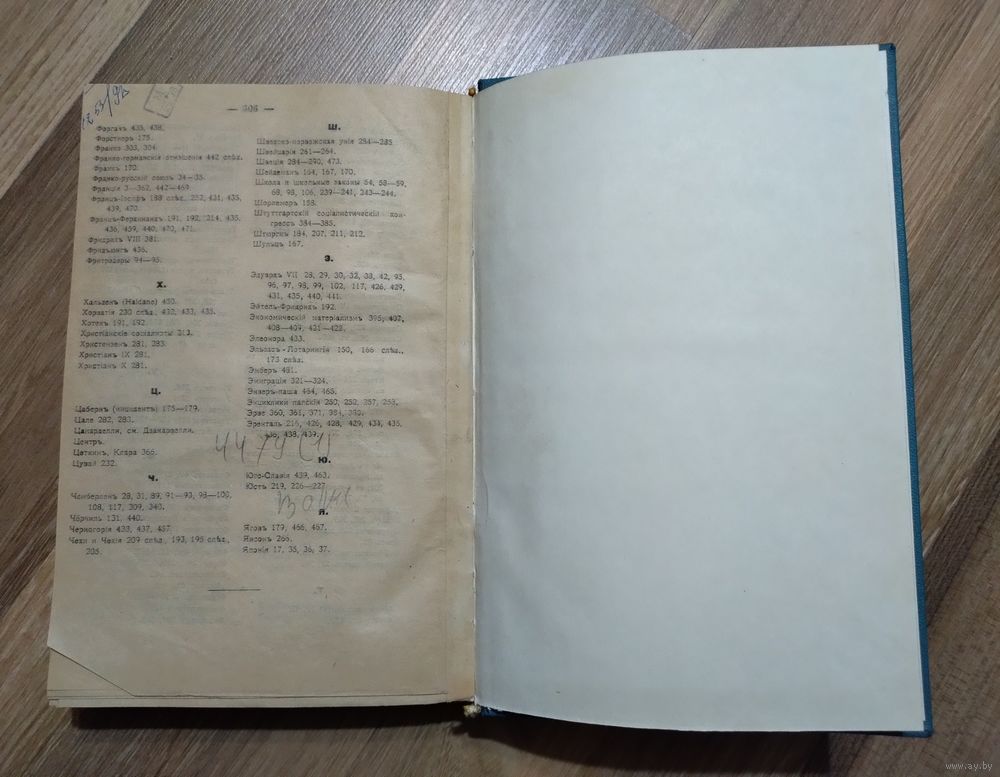 — 506 —
Форгач 435, 438.
Форстнеръ 175.
Франко 303, 304.
Франко-германскія отношенія 442 слѣд.
Франкъ 170.
Франко-русскій союзъ 34—35.
Франція 3—362, 442—469.
Францъ-Іосифъ 188 слѣд., 252, 431, 435,
439, 470.
Францъ-Фердинандъ 191, 192, 214, 435,
436, 439, 440, 470, 471.
Фридрихъ VIII 381.
Фридъюнгъ 436.
Фритредеры 94—95.
Х.
Хальденъ (Haldane) 450.
Хорватія 230 слѣд., 432, 433, 435.
Хотекъ 191, 192.
Христіанскіе соціалисты 203.
Христензенъ 281, 283.
Христіанъ IX 281.
Христіанъ X 281.
Ц.
Цабернъ (инцидентъ) 175—179.
Цале 282, 283.
Цанарделли, см. Дзанарделли.
Центръ.
Цеткинъ, Клара 366.
Цувай 232.
Ч.
Чемберленъ 28, 31, 89, 91—93, 98—100,
108, 117, 309, 340.
Чёрчиль 131, 440.
Черногорія 433, 437, 457.
Чехи и Чехія 209 слѣд., 193, 195 слѣд.,
205.
Ш.
Шведско-норвежская унія 284—285.
Швейцарія 261—264.
Швеція 284—290, 473.
Шейдеманъ 164, 167, 170.
Школа и школьные законы 54, 58—59,
68, 98, 106, 239—241, 243—244.
Шорлемеръ 158.
Штутгартскій соціалистическій кон-
грессъ 384—385.
Штюргкъ 184, 207, 211, 212.
Шульцъ 167.
Э.
Эдуардъ VII 28, 29, 30, 32, 38, 42, 95,
96, 97, 98, 99, 102, 117, 426, 429,
431, 435, 440, 441.
Эйтель-Фридрихъ 192.
Экономическій матеріализмъ 395, 402,
408—409, 421—422.
Элеонора 433.
Эльзасъ-Лотарингія 150, 166 слѣд.,
175 слѣд.
Эмберъ 481.
Эмиграція 321—324.
Энверъ-паша 464, 465.
Энциклики папскія 250, 252, 257, 258.
Эрве 360, 361, 371, 384, 390.
Эренталь 216, 426, 428, 429, 434, 435,
436, 438, 439.
4479 (1)
Ю.
Юго-Славія 439, 463.
Юстъ 219, 226—227.
Я.
Яговъ 179, 466, 467.
Янсонъ 266.
Японія 17, 35, 36, 37.
www.ay.by